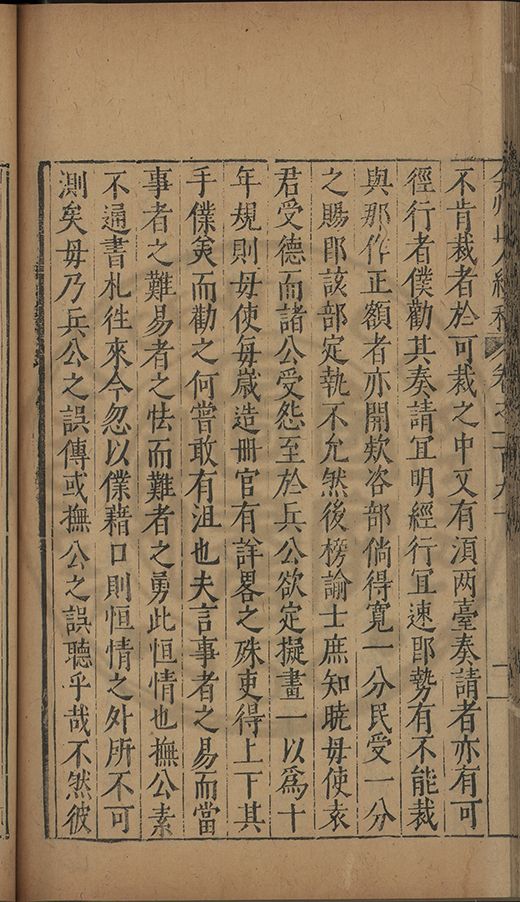 弇州山人續稿 卷之一百九十
不肯裁者於可裁之中又有湏两臺奏請者亦有可
徑行者僕勸其奏請冝明經行冝速即勢有不能裁
與那作正額者亦開欵咨部倘得寛一分民受一分
之賜即該部定執不允然後榜諭士庶知曉毋使袁
君受德而諸公受怨至於兵公欲定擬畫一以爲十
年規則毋使每歲造冊官有詳畧之殊吏得上下其
手僕亦而勸之何嘗敢有沮也夫言事者之易而當
事者之難易者之怯而難者之勇此恒情也撫公素
不通書札徃來今忽以僕藉口則恒情之外所不可
測矣毋乃兵公之誤傳或撫公之誤聽乎哉不然彼